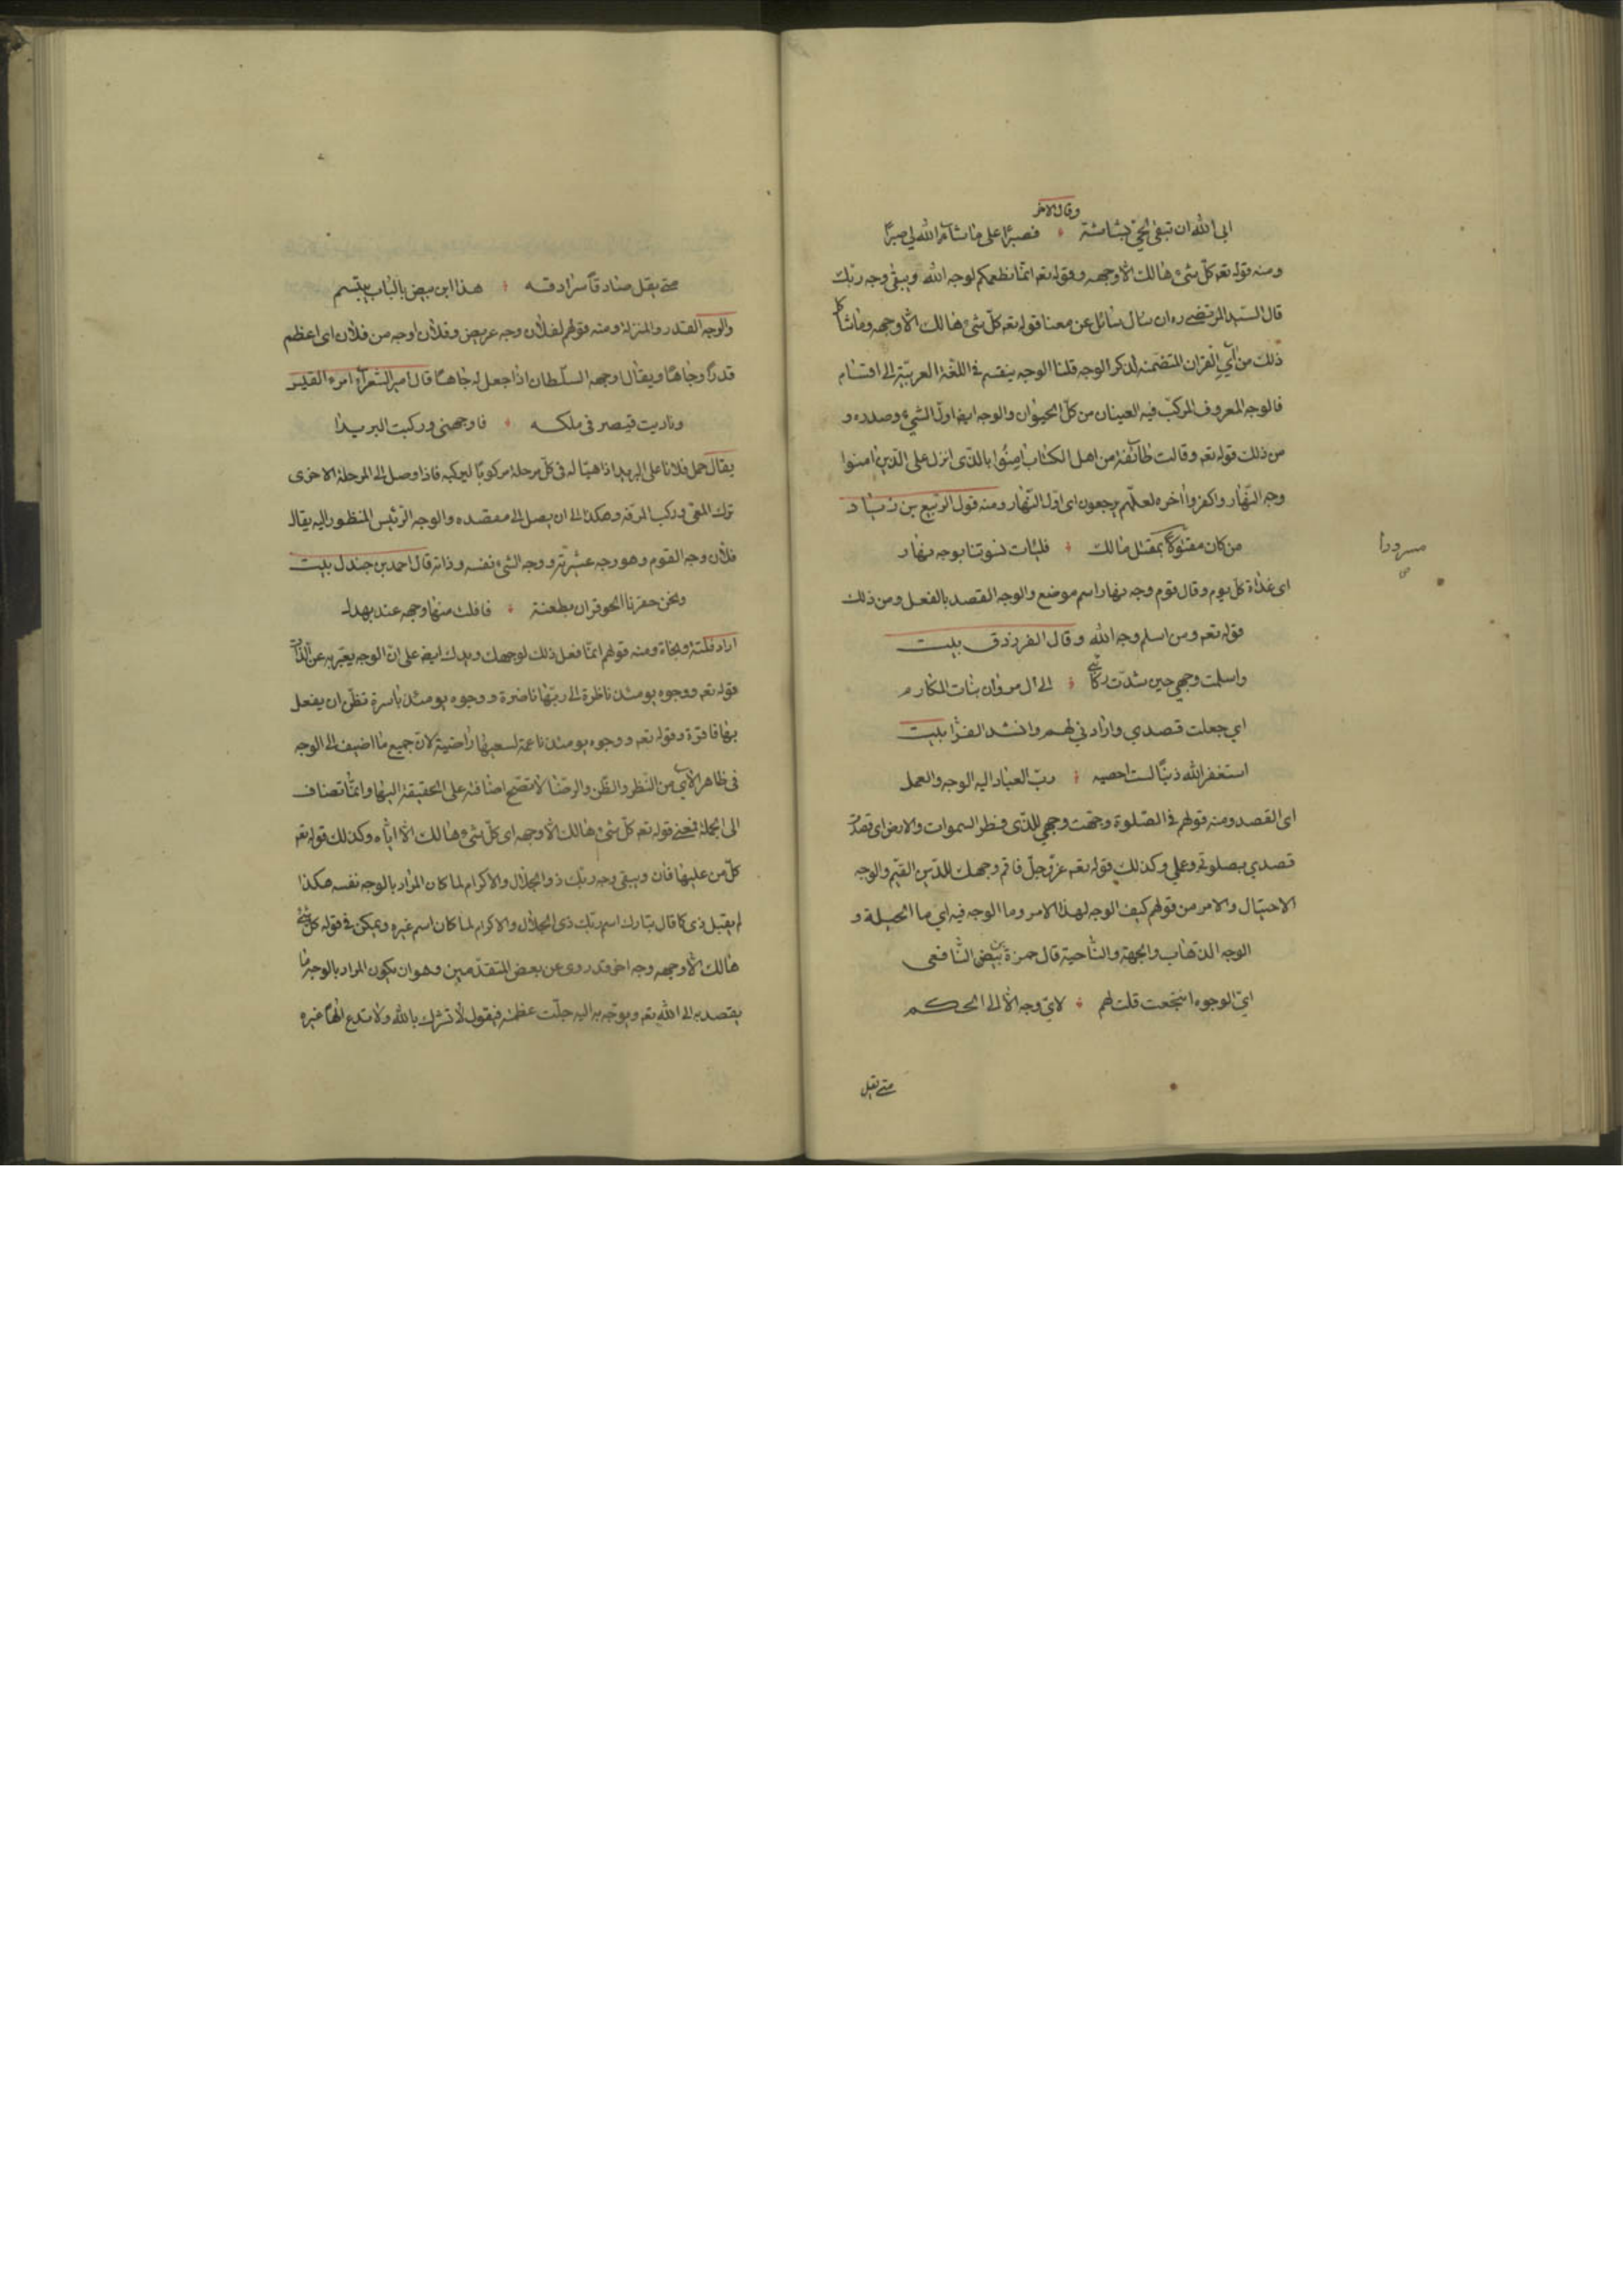 وقال الاخر
ابى الله ان تبقى لحي بشاشة فصبرا على ما شاءه الله لي صبرا
ومنه قوله تعه كل شئ هالك الا وجهه وقوله تعه انما نطعمكم لوجه الله ويبقى وجه ربك
قال السيد المرتضى ره ان سال سائل عن معنا قوله تعه كل شئ هالك الا وجهه وما شاكل
ذلك من آي القران المتضمنه لذكر الوجه قلنا الوجه ينقسم فى اللغة العربية الى اقسام
فالوجه المعروف المركب فيه العينان من كل الحيوان والوجه ايضه اول الشئ وصدره و
من ذلك قوله تعه وقالت طائفة من اهل الكتاب امنوا بالذى انزل على الذين امنوا
وجه النهار واكفروا اخره لعلهم يرجعون اى اول النهار ومنه قول الربيع بن زياد
من كان مقتولا بمقتل مالك فليات نسوتنا بوجه نهار
مسرورا
اى غداة كل يوم وقال قوم وجه نهار اسم موضع والوجه القصد بالفعل ومن ذلك
قوله تعه ومن اسلم وجه الله وقال الفرزدق بليت
واسلمت وجهي حين شدت ركائبي الى ال مروان بنات المكارم
اي جعلت قصدي وارادتي لهم وانشد الفرا بليت
استغفر الله ذنبا لست احصيه رب العباد اليه الوجه والعمل
اى القصد ومنه قولهم فى الصلوة وجهت وجهي للذى فطر السموات والارض اى قصدت
قصدي بصلوتي وعملي وكذلك قوله تعه عز وجل فاقم وجهك للدين القيم والوجه
الاحتيال والامر من قولهم كيف الوجه لهذا الامر وما الوجه فيه اي ما الحيلة و
الوجه الذهاب والجهة والناحية قال حمزة بن بيض الشافعى
اي الوجوه انتجعت قلت لهم لاي وجه الا الى الحكم
متى يقل
متى يقل صادقا سرادقه هذا ابن بيض بالباب يبتسم
والوجه القدر والمنزلة ومنه قولهم لفلان وجه عريض وفلان اوجه من فلان اى اعظم
قدرا وجاها ويقال اوجهه السلطان اذا جعل له جاها قال امير الشعرآء امرء القيس
وناديت قيصر فى ملكه فاوجهنى وركبت البريدا
يقال حمل فلانا على البريد اذا هيا له فى كل مرحلة مركوبا ليركبه فاذا وصل الى المرحلة الاخرى
ترك المعى وركب المرفه وهكذا الى ان يصل الى مقصده والوجه الرئيس المنظور اليه يقال
فلان وجه القوم وهو وجه عشيرته ووجه الشئ نفسه وذاته قال احمد بن جندل بليت
ونحن حفزنا الحوفزان بطعنة فافلت منها وجهه عند بهدل
اراد فلتة ونجاة ومنه قولهم انما فعل ذلك لوجهك ويدلك ايضه على ان الوجه يعبر به عن الذات
قوله تعه ووجوه يومئذ ناظرة الى ربها ناضرة ووجوه يومئذ باسرة تظن ان يفعل
بها فاقرة وقوله تعه ووجوه يومئذ ناعمة لسعيها راضية لان جميع ما اضيف الى الوجه
فى ظاهر الآي من النظر والظن والرضا لا تصح اضافته على الحقيقة اليها وانما تضاف
الى الجملة فمعنى قوله تعه كل شئ هالك الا وجهه اى كل شئ هالك الا اياه وكذلك قوله تعه
كل من عليها فان ويبقى وجه ربك ذو الجلال والاكرام لما كان المراد بالوجه نفسه هكذا
لم يقبل ذى كما قال تبارك اسم ربك ذى الجلال والاكرام لما كان اسم غيره ويمكن فى قوله كل شئ
هالك الا وجهه وجه اخر قد روى عن بعض المتقدمين وهو ان يكون المراد بالوجه ما
يقصد به الى الله تعه ويوجه به اليه جلت عظمته فيقول لا تشرك بالله ولا تدع الها غيره